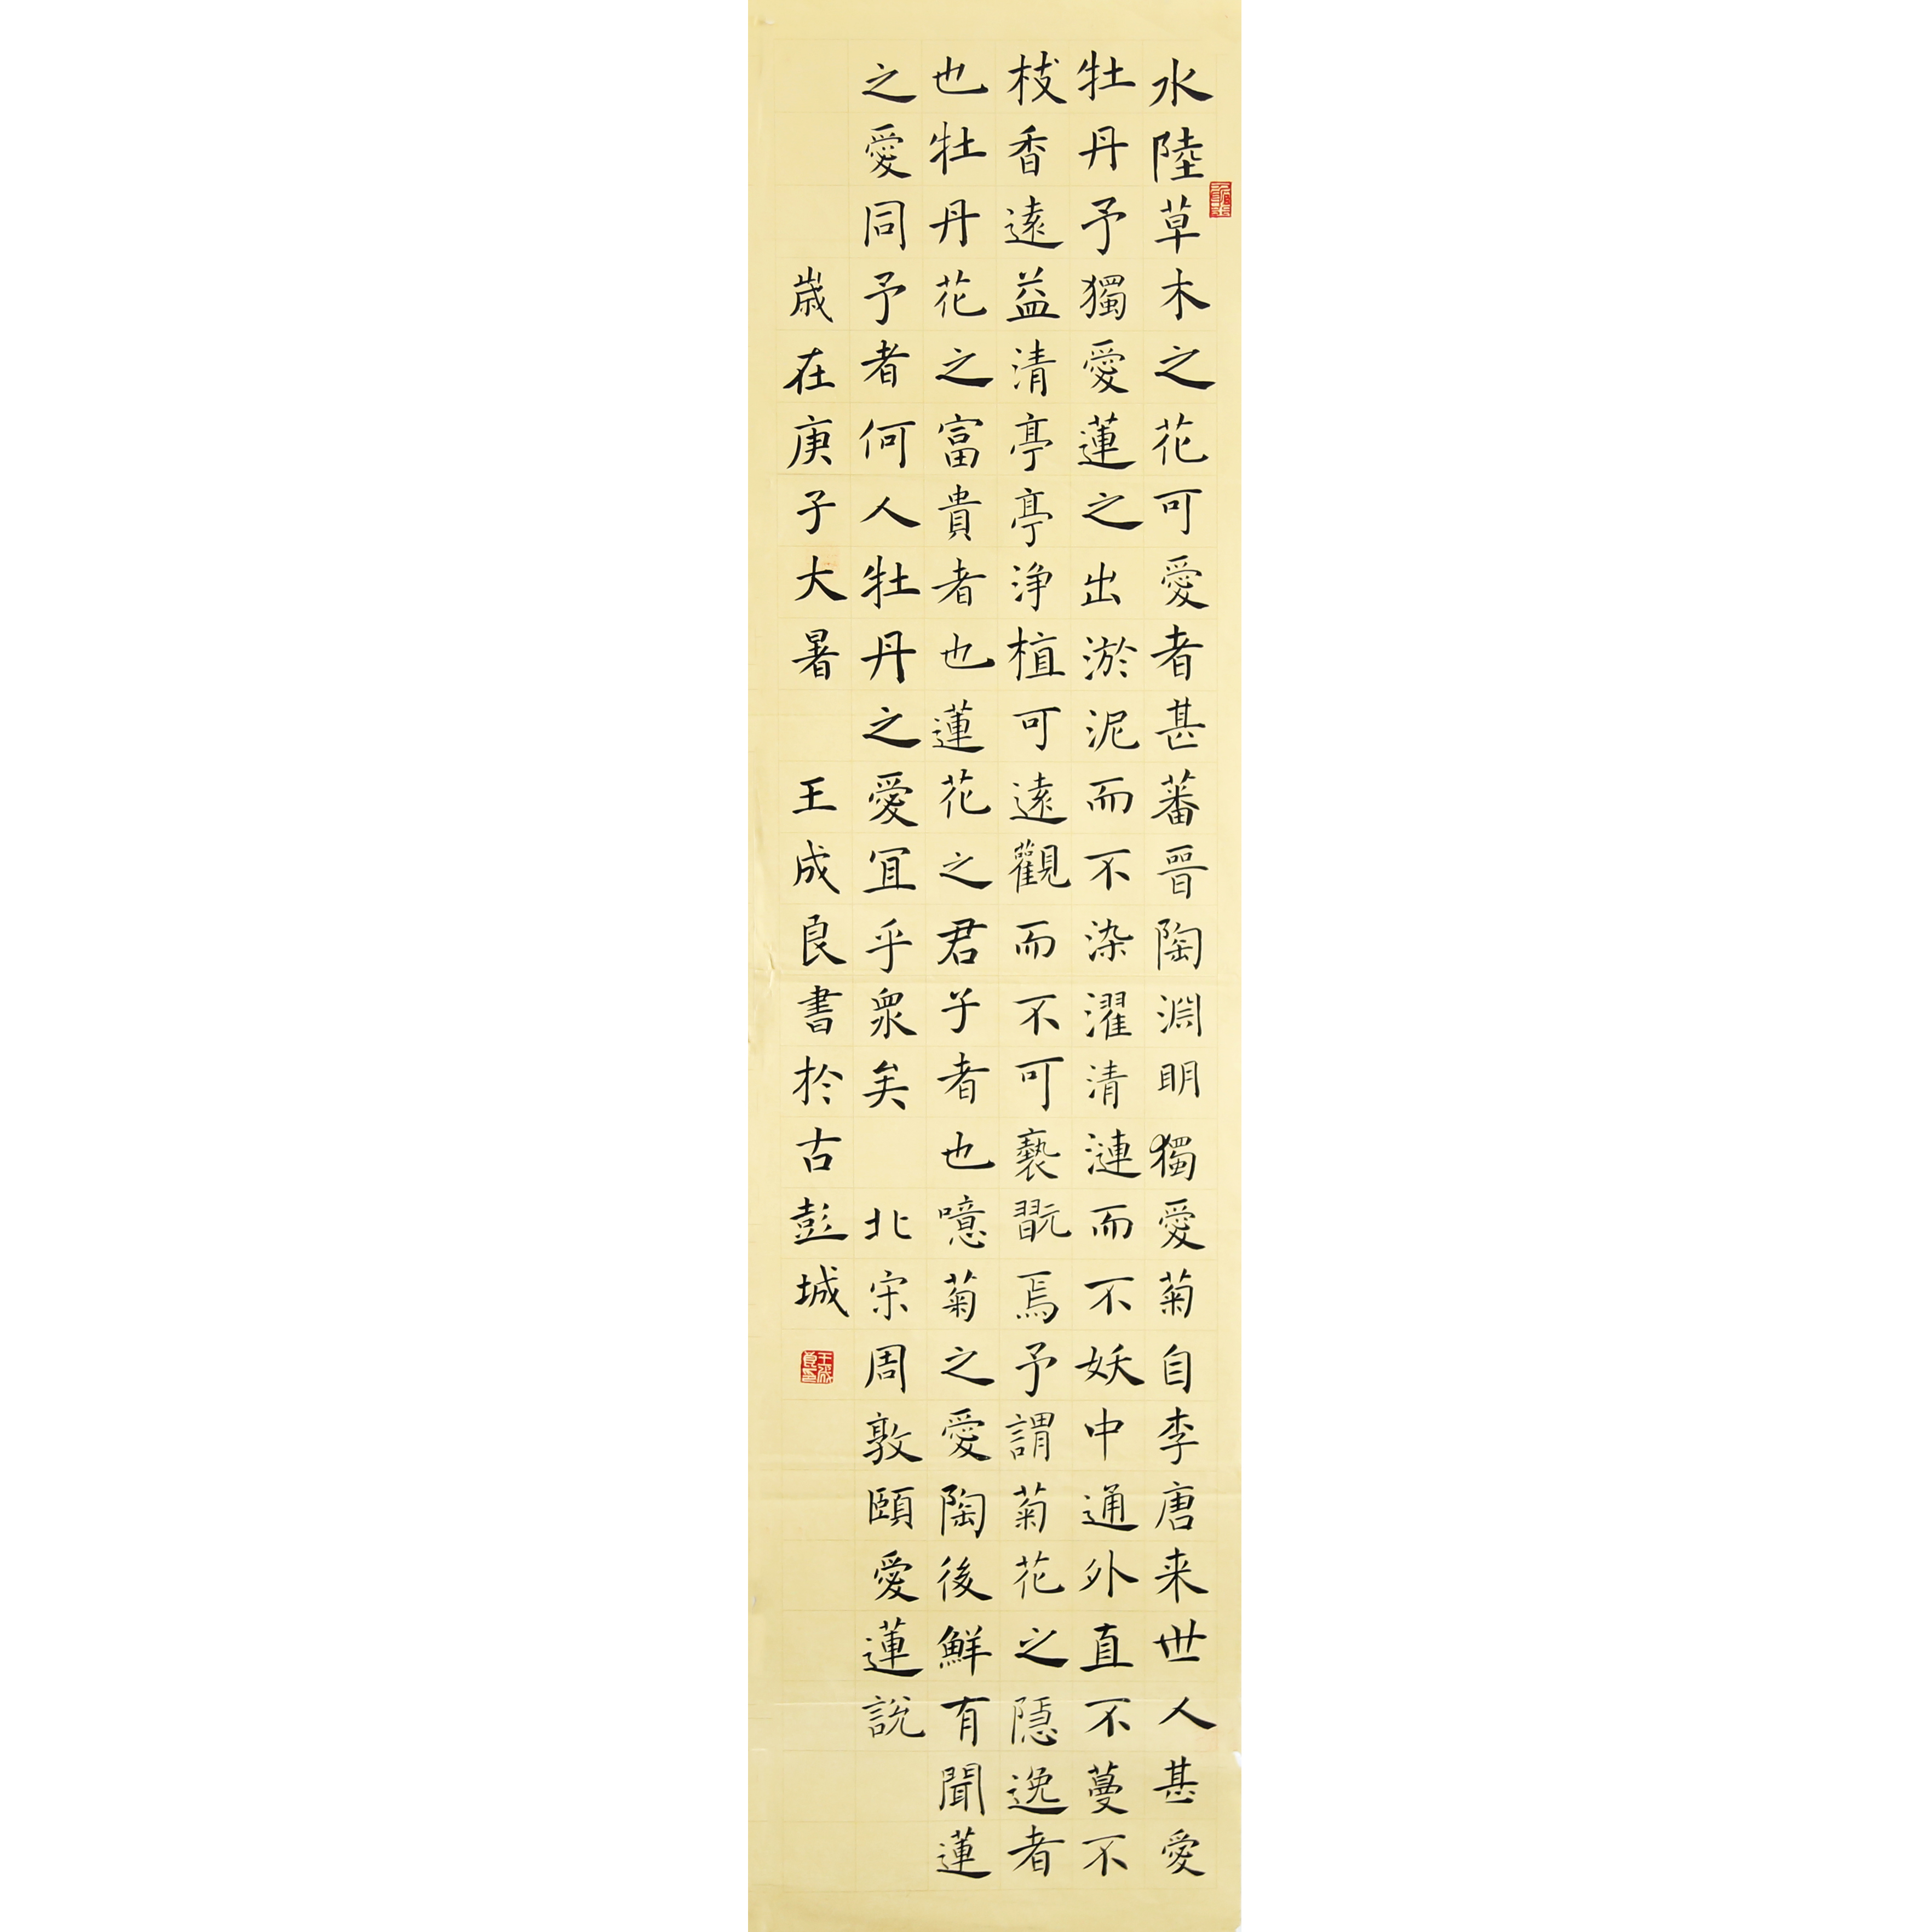 水陸草木之花可愛者甚蕃晉陶淵明獨愛菊自李唐来世人甚愛
牡丹予獨愛蓮之出淤泥而不染濯清漣而不妖中通外直不蔓不
枝香遠益清亭亭浄植可遠觀而不可褻翫焉予謂菊花之隱逸者
也牡丹花之富貴者也蓮花之君子者也噫菊之愛陶後鮮有聞蓮
之愛同予者何人牡丹之愛宜乎衆矣 北宋周敦頤愛蓮說
歲在庚子大暑 王成良書於古彭城
王成良印